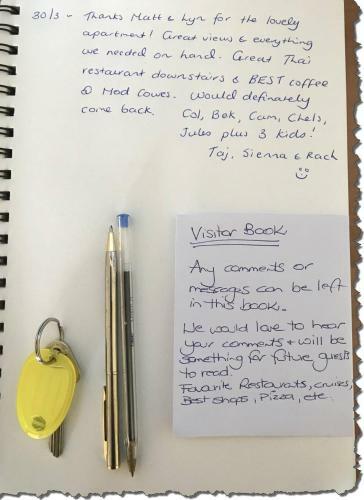 30/3 - Thanks Matt & Lyn for the lovely
apartment! Great views & everything
we needed on hand. Great Thai
restaurant downstairs & BEST coffee
@ Mad Cowes. Would definately
come back. Col, Bek, Cam, Chels,
Jules plus 3 kids!
Taj, Sienna & Rach
Visitor Book
Any comments or
messages can be left
in this book.
We would love to hear
your comments + will be
something for future guests
to read.
Favorite Restaurats, cruises,
Best shops, Pizza, etc.